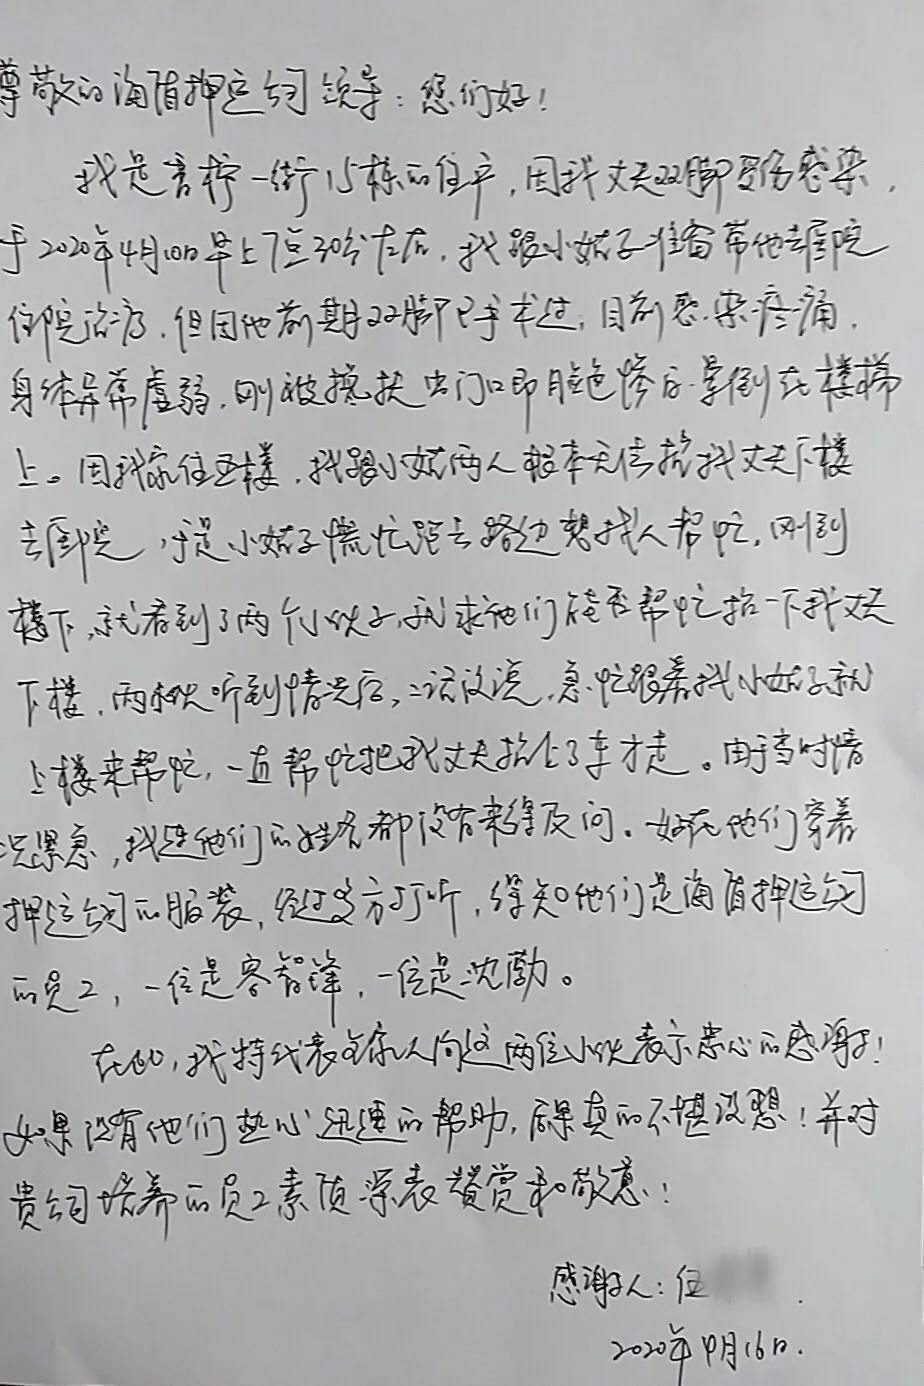 尊敬的海盾押运公司领导：您们好！
我是香柠一街15栋的住户，因我丈夫双脚受伤感染，
于2020年4月10日早上7点30分左右，我跟小姑子准备带他去医院
住院治疗，但因他前期双脚已手术过，目前感染疼痛，
身体异常虚弱，刚被搀扶出门口即脸色惨白晕倒在楼梯
上。因我家住五楼，我跟小姑两人根本无法抬我丈夫下楼
去医院，于是小姑子慌忙跑去路边想找人帮忙，刚到
楼下，就看到了两个小伙子，就求他们能否帮忙抬一下我丈夫
下楼，两小伙听到情况后，二话没说，急忙跟着我小姑子就
上楼来帮忙，一直帮忙把我丈夫抬上了车才走。由于当时情
况紧急，我连他们的姓名都没有来得及问。好在他们穿着
押运公司的服装，经过多方打听，得知他们是海盾押运公司
的员工，一位是容智锋，一位是沈勋。
在此，我特代表全家人向这两位小伙表示衷心的感谢！
如果没有他们热心迅速的帮助，后果真的不堪设想！并对
贵公司培养的员工素质深表赞赏和敬意！
感谢人：伍
2020年4月16日.